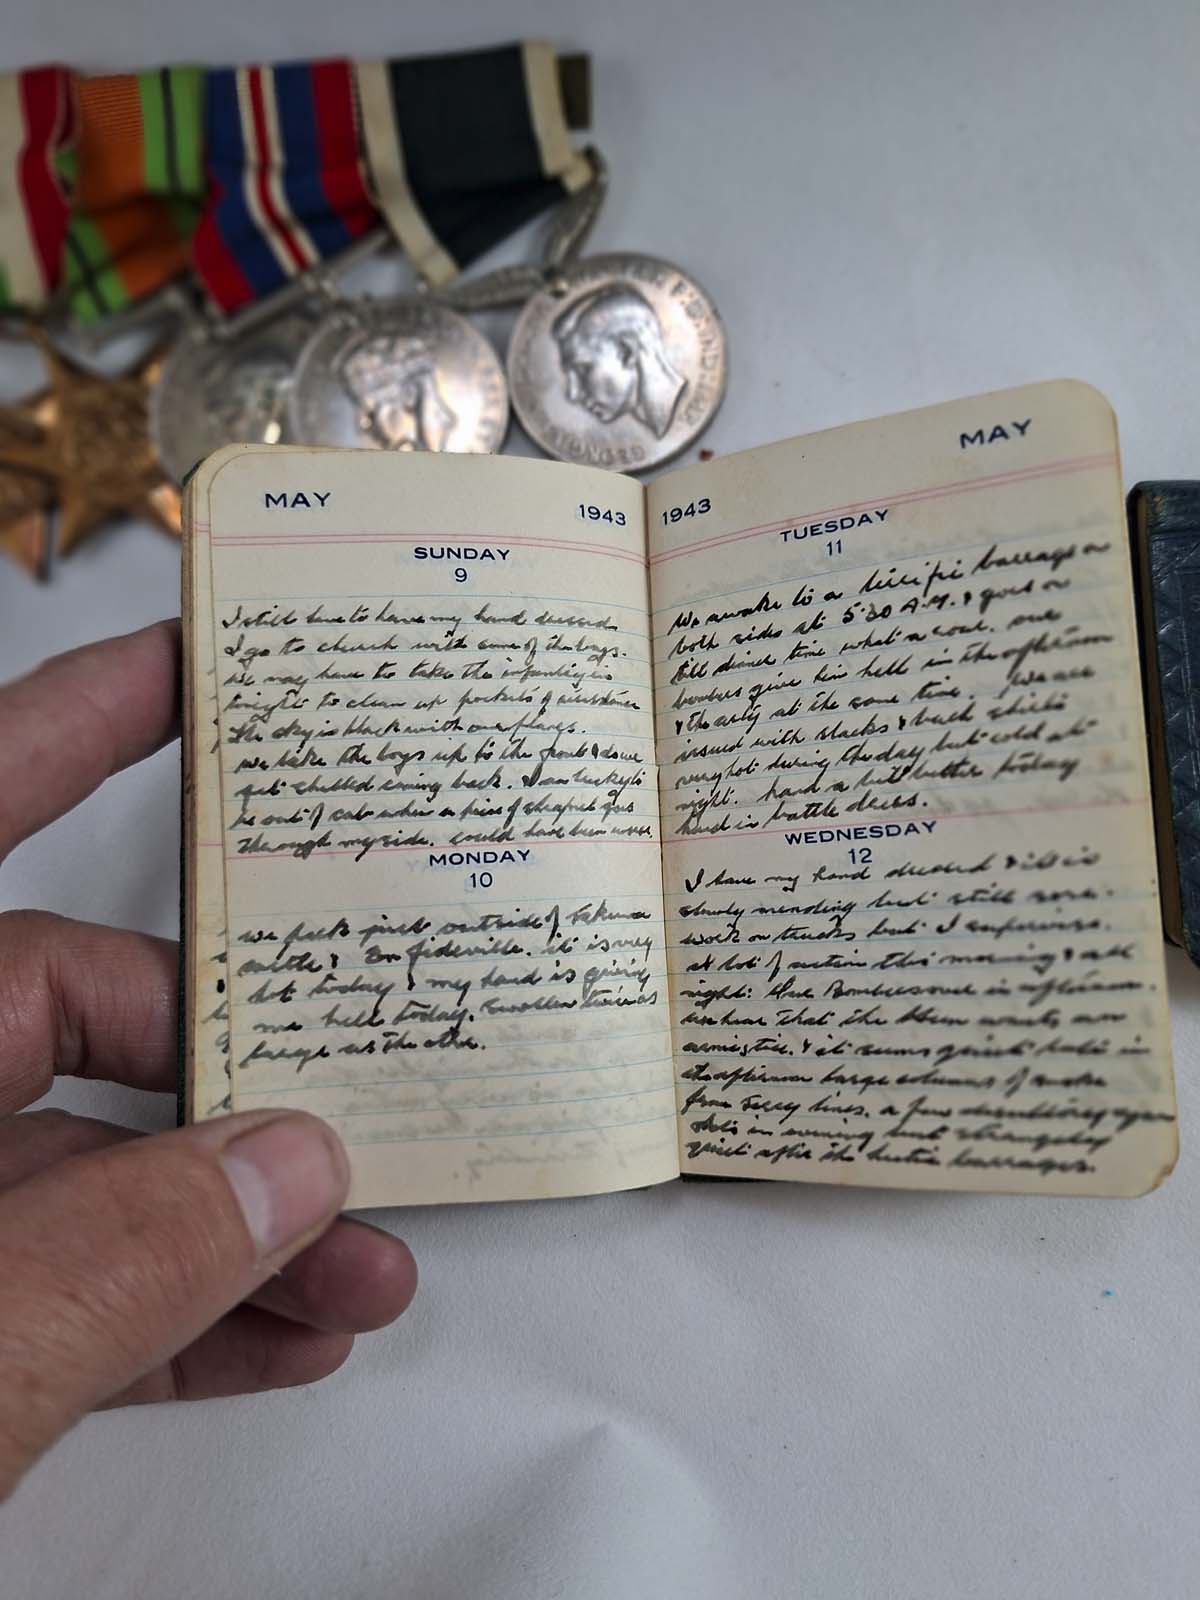 MAY 1943
SUNDAY
9
I still have to have my hand dressed
I go to church with some of the boys.
We may have to take the infantry in
tonight to clean up pockets of resistance
The sky is black with our planes.
we take the boys up to the front & do we
get shelled coming back. I am lucky to
be out of cab when a piece of shrapnel goes
through my side. could have been worse.
MONDAY
10
we park just outside of
& Enfidaville. it is very
hot today & my hand is giving
me hell today. Swollen twice as
large as the other.
1943 MAY
TUESDAY
11
We awake to a terrific barrage on
both sides at 5:30 A.M. & goes on
till dinner time what a row. our
bombers give him hell in the afternoon
& the arty at the same time. We are
issued with slacks & bush shirts
very hot during the day but cold at
night. hand a bit better today
hand in battle dress.
WEDNESDAY
12
I have my hand dressed & it is
slowly mending but still sore.
work on trucks but I supervise.
A lot of action this morning & all
night. Our Bombers over in afternoon.
we hear that the Hun wants an
armistice. & it seems quiet
in the afternoon large columns of smoke
from Jerry lines. a few
shots in evening but strangely
quiet after the hectic barrages.